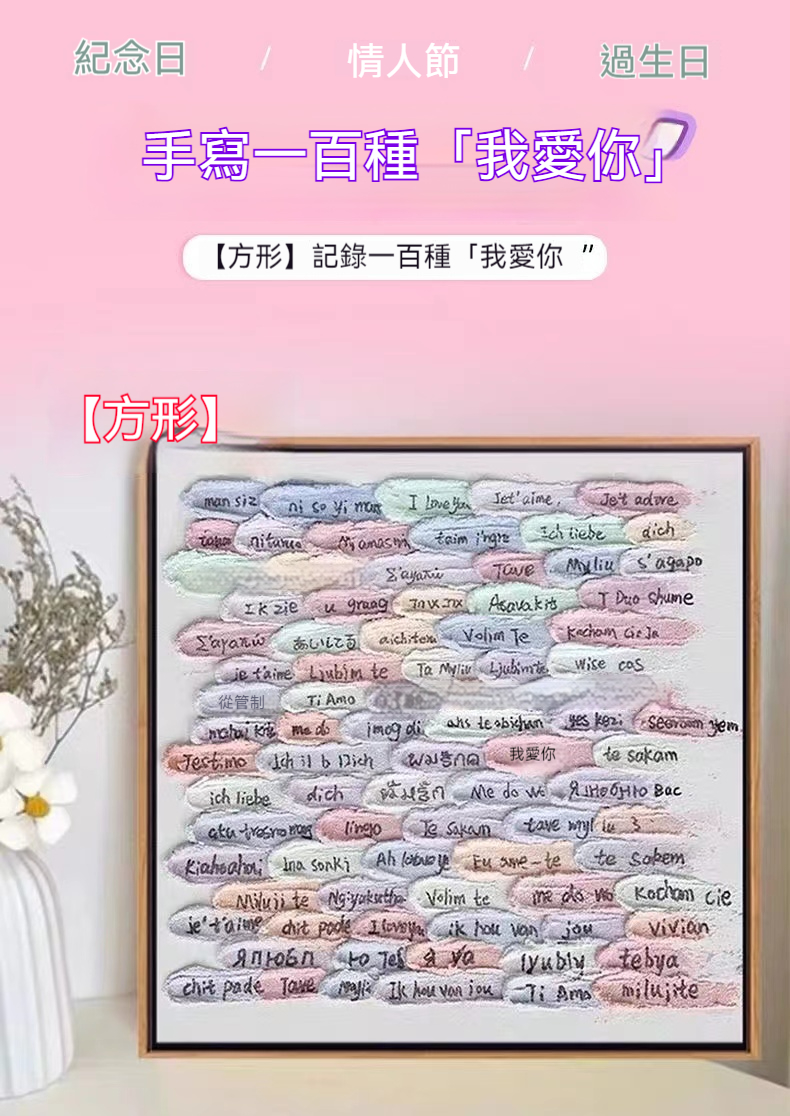 紀念日 / 情人節 / 過生日
手寫一百種「我愛你」
【方形】記錄一百種「我愛你 ”
【方形】
man siz ni so yi man I Love You Jet'aime, Je't adore
nitance taim i'ngre Ich liebe dich
Σ'αγαπώ Tave Myliu s'agapo
Ik zie u graag Asavakit T Duo Shume
Σ'αγαπώ あいしてる aishiteru Volim Te Kocham Cie Ja
je t'aime Ljubim te Ta Myliu Ljubimte wise cas
從管制 Ti Amo
mahai kita me do imog di ahs te obicham yes kezi seeroom yem
Testimo Ich li b Dich ผมรักคุณ 我愛你 te sakam
ich liebe dich Me do wo Я люблю Вас
aku tresno lingo Te sakam tave myl iu 3
Kiahoahai Ina sonki Ah lobwoye Eu ame-te te sakem
Miluji te Ngiyakutha Volim te me do wo Kocham cie
je't'aime chit pade I loveyou ik hou van jou Vivian
Я люблю to Tef a va lyubly tebya
chit pade Tave Mylii Ik hou van jou Ti Amo milujite